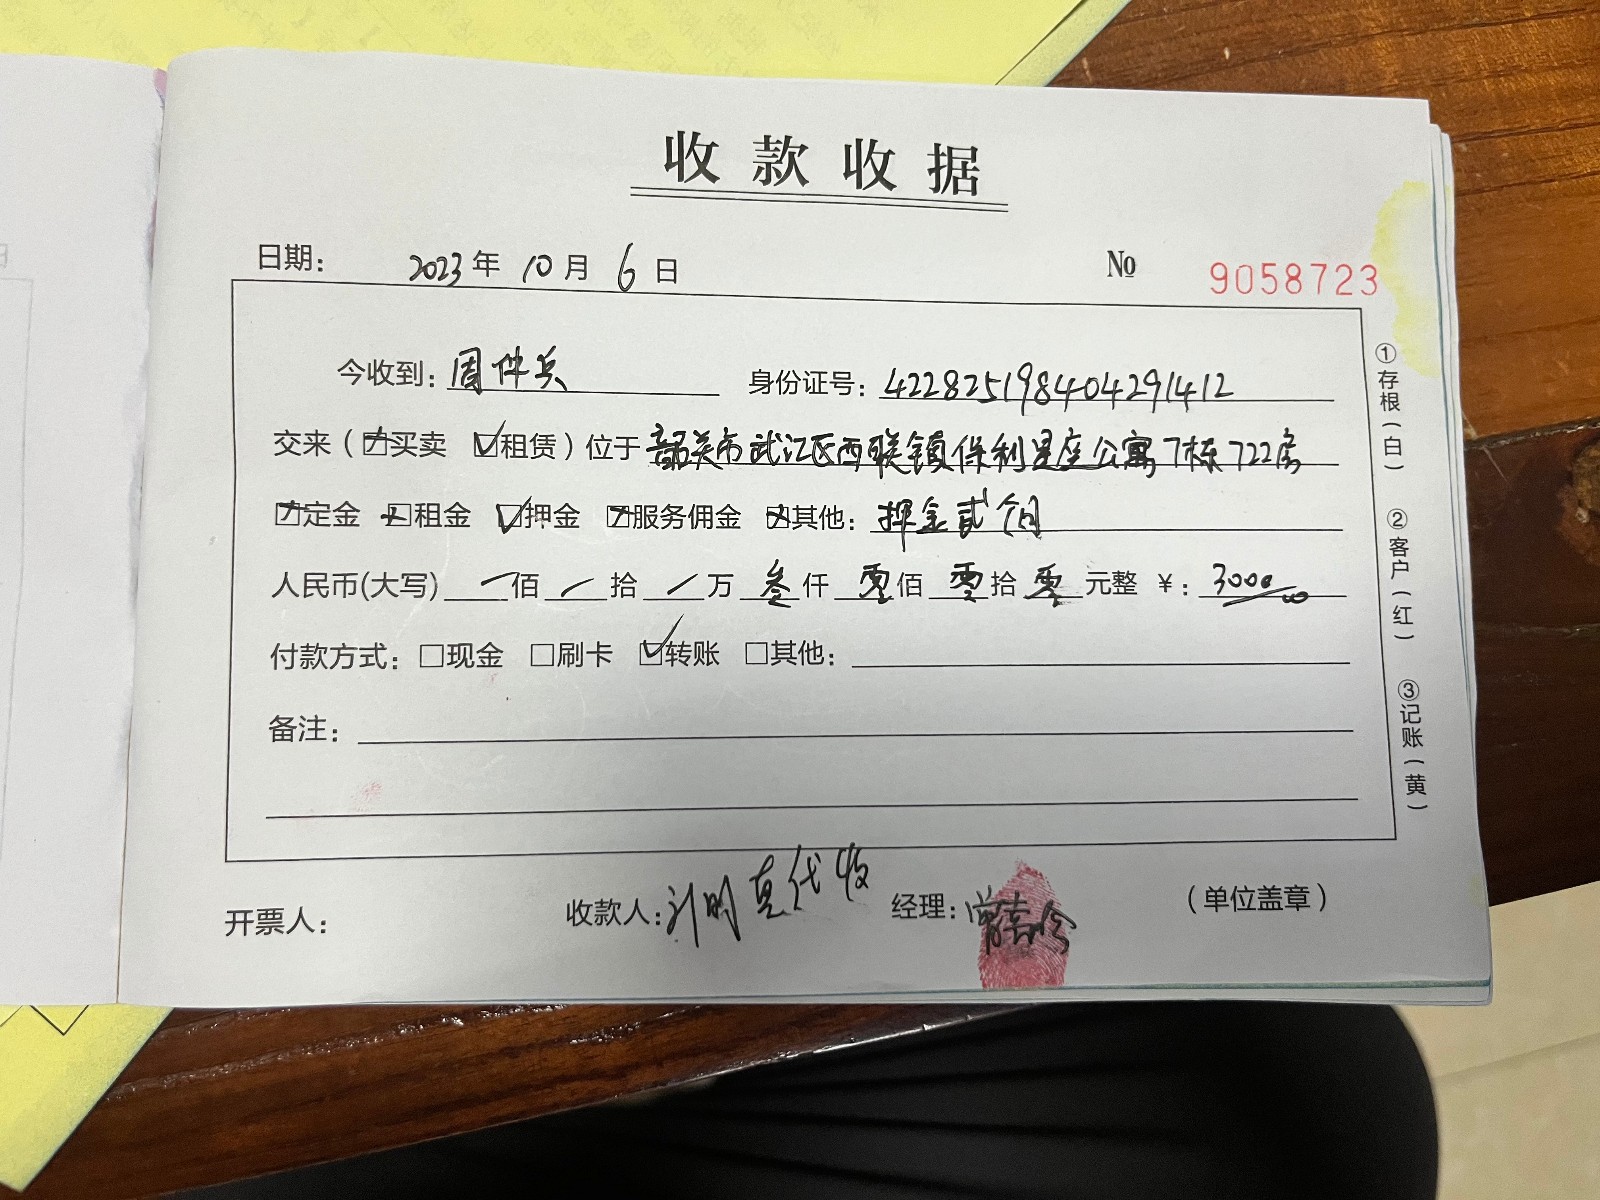 收款收据
日期： 2023年 10月 6日 № 9058723
今收到：周件兵 身份证号：422825198404291412
交来（☒买卖 ☑租赁）位于 韶关市武江区西联镇保利星座公寓7栋722房
☒定金 ☒租金 ☑押金 ☒服务佣金 ☒其他：押金贰个月
人民币(大写) 一佰 / 拾 / 万 叁仟 零佰 零拾 零 元整 ¥：3000.00
付款方式：□现金 □刷卡 ☑转账 □其他：
备注：
开票人： 收款人： 代收 经理： （单位盖章）
①存根（白） ②客户（红） ③记账（黄）